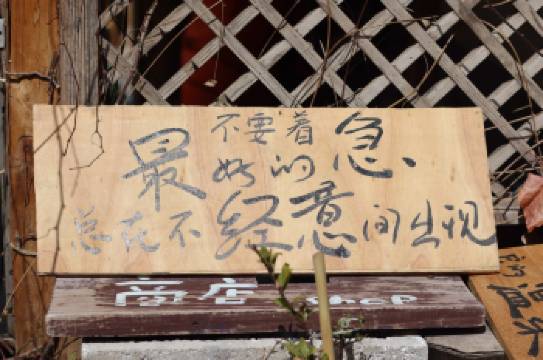 不要着急、
最好的
总在不经意间出现
商店 shop